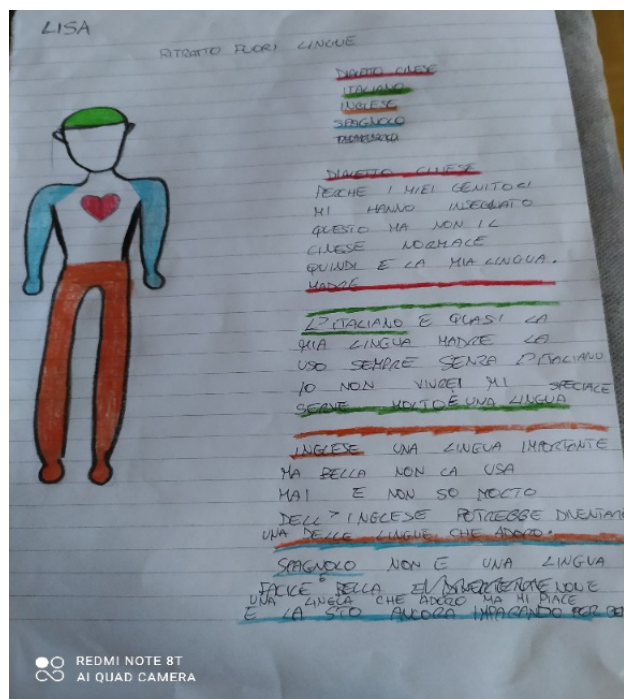 LISA
RITRATTO FUORI LINGUE
DIALETTO CINESE
ITALIANO
INGLESE
SPAGNOLO
DIALETTO CINESE
PERCHE I MIEI GENITORI
MI HANNO INSEGNATO
QUESTO MA NON IL
CINESE NORMALE
QUINDI E LA MIA LINGUA.
MADRE
L'ITALIANO E QUASI LA
MIA LINGUA MADRE LA
USO SEMPRE SENZA L'ITALIANO
IO NON VIVREI MI SPECIALE
SERVE MOLTO È UNA LINGUA
INGLESE UNA LINGUA IMPORTANTE
MA BELLA NON LA USA
MAI E NON SO MOLTO
DELL'INGLESE POTREBBE DIVENTARE
UNA DELLE LINGUE CHE ADORO.
SPAGNOLO NON E UNA LINGUA
FACILE BELLA E NON E
UNA LINGUA CHE ADORO MA MI PIACE
E LA STO ANCORA IMPARANDO PER
REDMI NOTE 8T
AI QUAD CAMERA